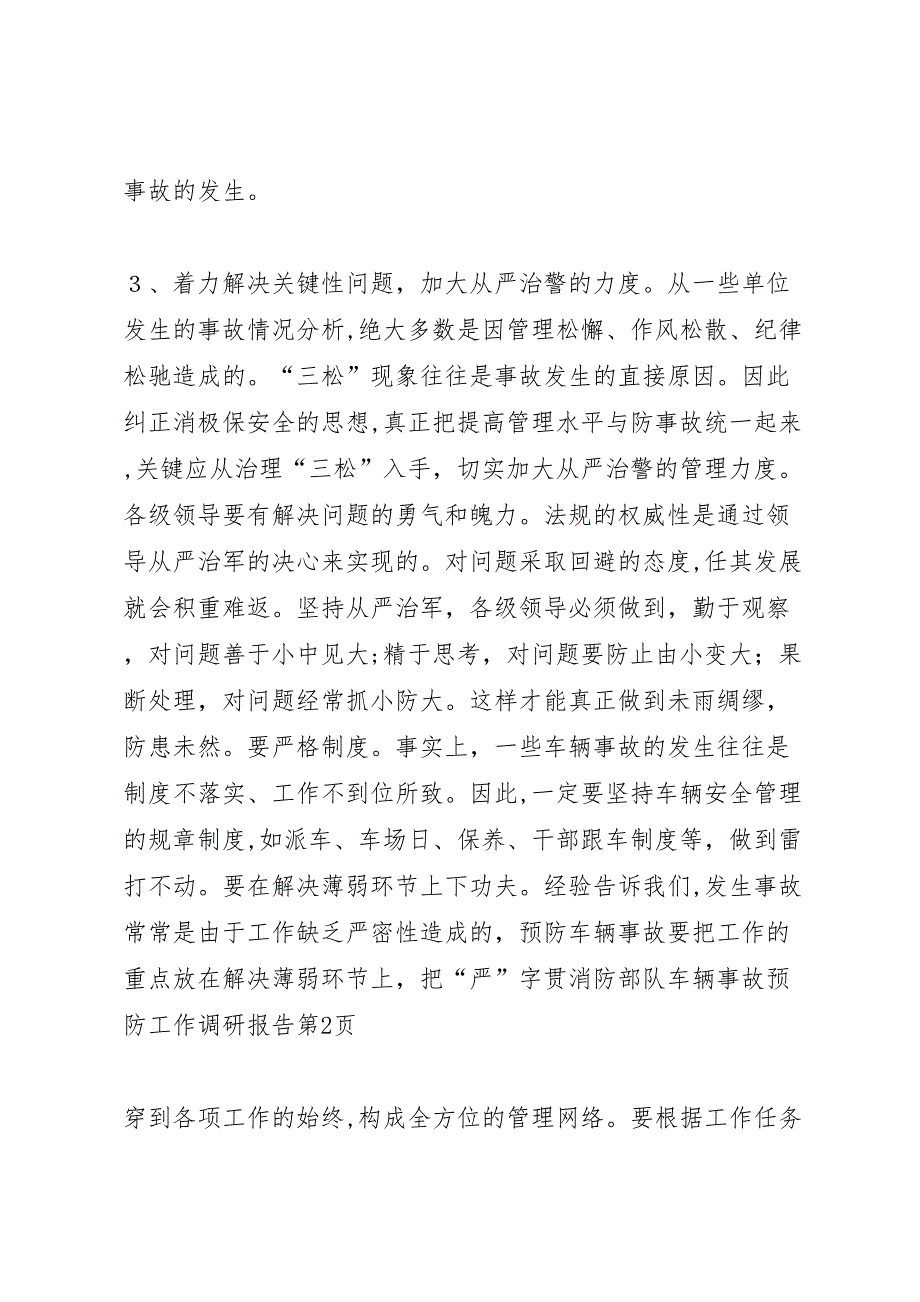 事故的发生。
３、着力解决关键性问题，加大从严治警的力度。从一些单位
发生的事故情况分析,绝大多数是因管理松懈、作风松散、纪律
松驰造成的。“三松”现象往往是事故发生的直接原因。因此
纠正消极保安全的思想,真正把提高管理水平与防事故统一起来
,关键应从治理“三松”入手，切实加大从严治警的管理力度。
各级领导要有解决问题的勇气和魄力。法规的权威性是通过领
导从严治军的决心来实现的。对问题采取回避的态度,任其发展
就会积重难返。坚持从严治军，各级领导必须做到，勤于观察
，对问题善于小中见大;精于思考，对问题要防止由小变大；果
断处理，对问题经常抓小防大。这样才能真正做到未雨绸缪，
防患未然。要严格制度。事实上，一些车辆事故的发生往往是
制度不落实、工作不到位所致。因此,一定要坚持车辆安全管理
的规章制度,如派车、车场日、保养、干部跟车制度等，做到雷
打不动。要在解决薄弱环节上下功夫。经验告诉我们,发生事故
常常是由于工作缺乏严密性造成的，预防车辆事故要把工作的
重点放在解决薄弱环节上，把“严”字贯消防部队车辆事故预
防工作调研报告第2页
穿到各项工作的始终,构成全方位的管理网络。要根据工作任务